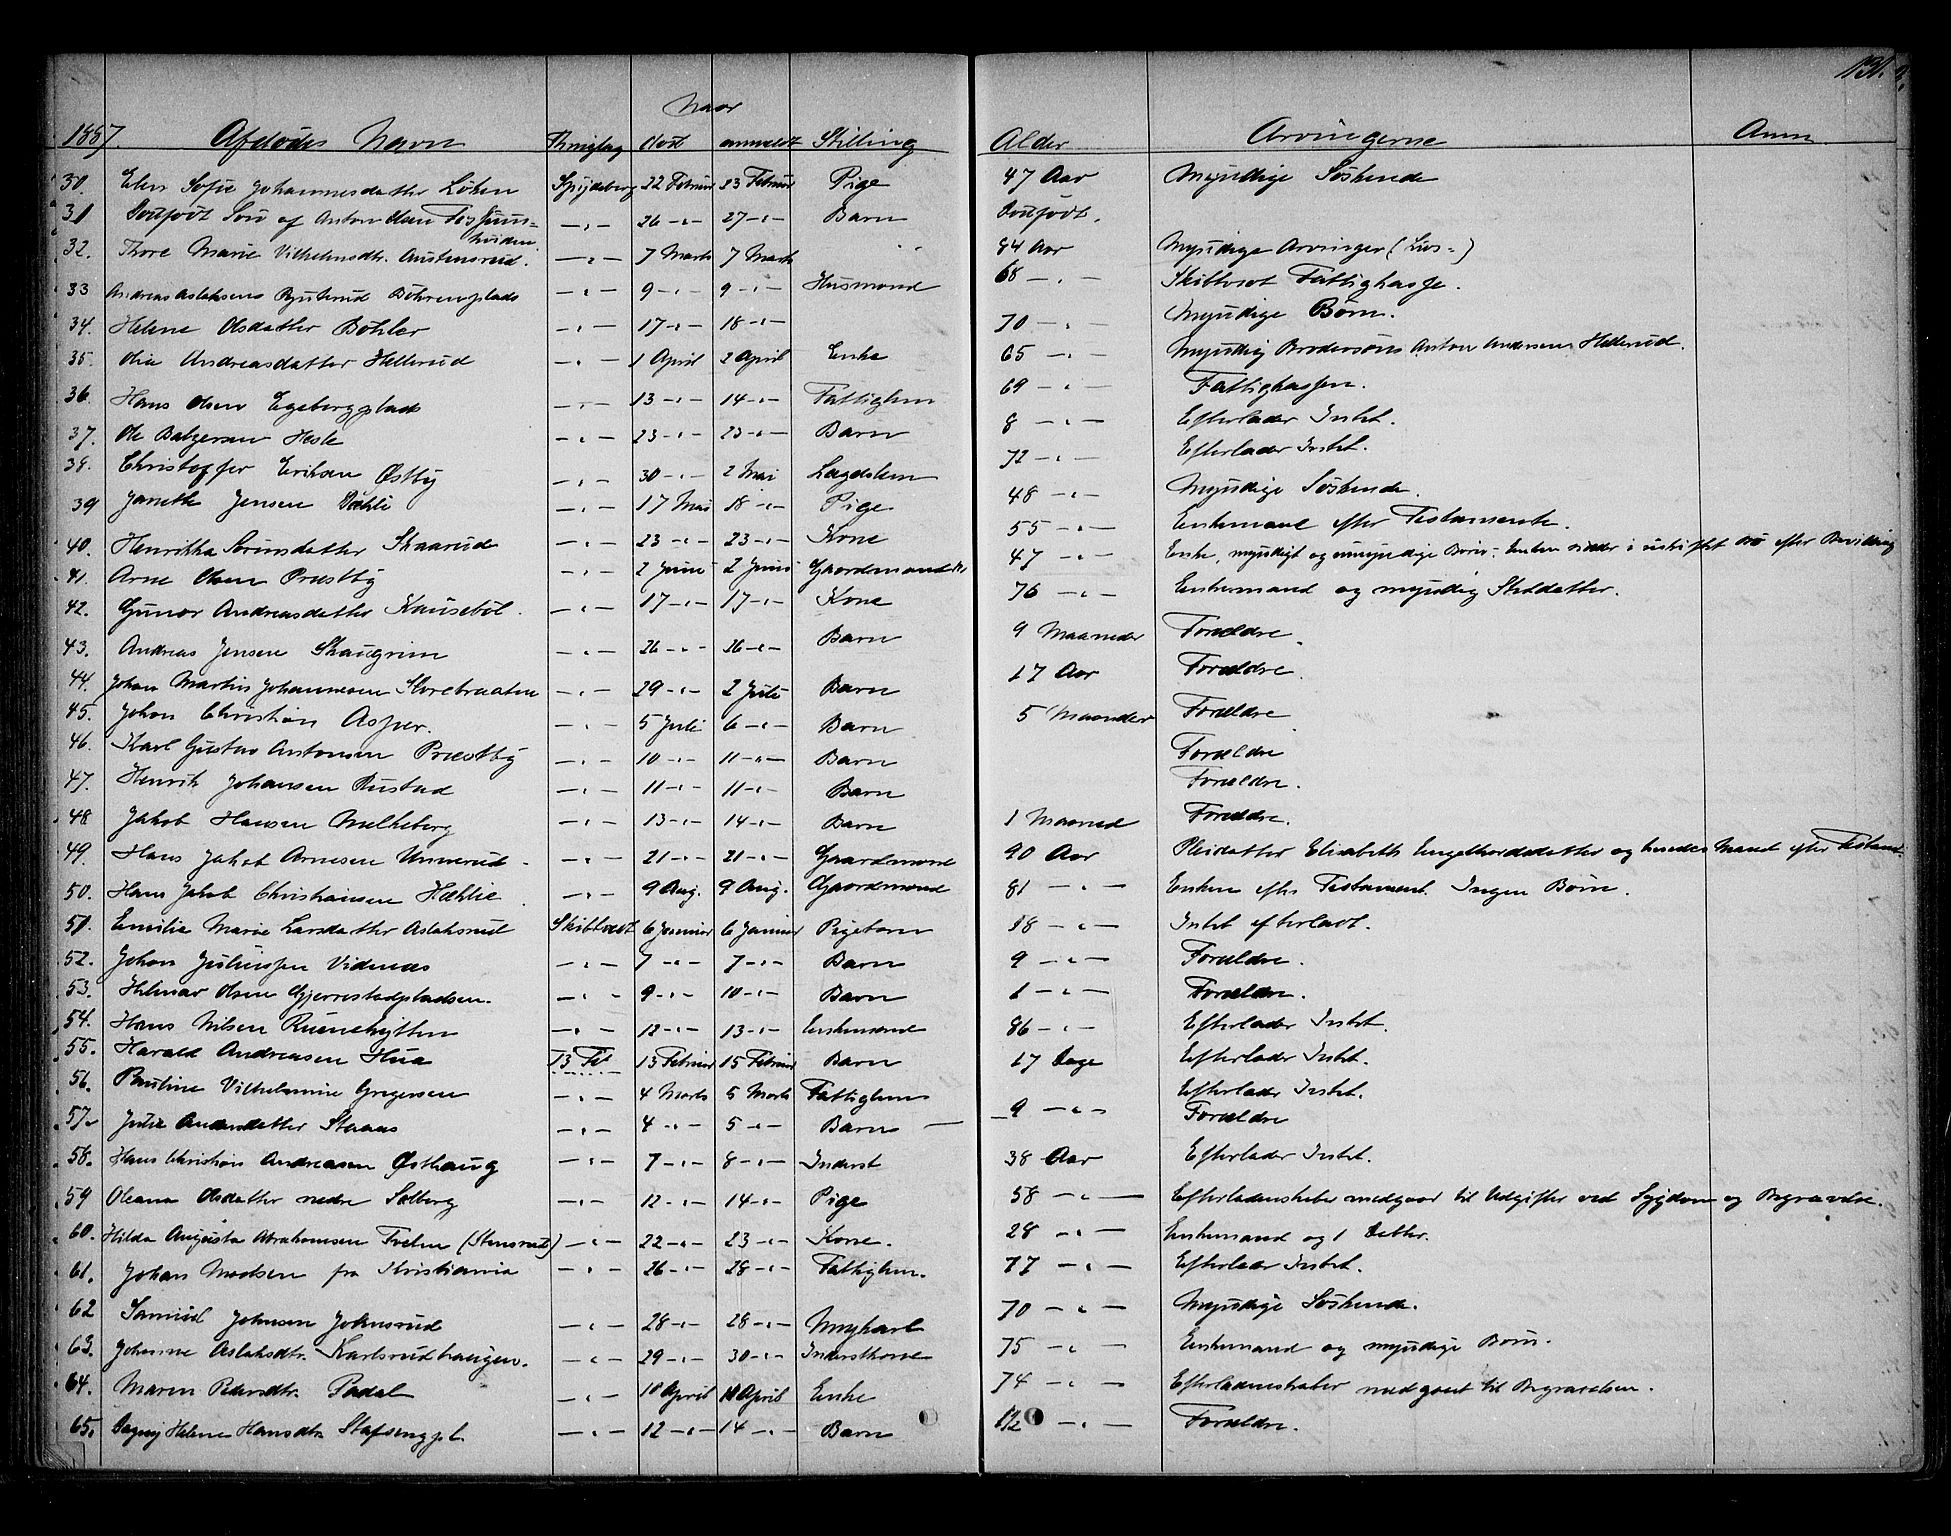 131.
Naar
1887. Afdødes Navn Thinglag død anmeldt Stilling Alder Arvingerne Anm
30. Elen Sofie Johannesdatter Løken Spydeberg 22 Februar 23 Februar Pige 47 Aar Myndige Søskende
31 Dødfødt Søn af Anton Olsen — " — 26 — " — 27 — " — Barn Dødfødt.
32. Thore Marie Vilhelmsdtr. Austensrud. — " — 7 Marts 7 Marts " 84 Aar Myndige Arvinger (Livs-)
33 Andreas Aslaksens Rusterud Böhrenplads — " — 9 — " — 9 — " — Husmand 68 — " Skibtvet Fattigkasse.
34. Helene Olsdatter Böhler — " — 17 — " — 18 — " — 70 — " — Myndige Børn.
35. Olia Andreasdatter Hellerud — " — 1 April 2 April Enke 65 — " — Myndig Brodersøns Anton Andersen Hellerud.
36. Hans Olsen Egebergplads — " — 13 — " — 14 — " — Fattiglem 69 — " — Fattigkassen.
37. Ole Balzersen Hesle — " — 23 — " — 23 — " — Barn 8 — " — Efterlader Intet.
38. Christoffer Eriksen Østby — " — 30 — " — 2 Mai Lægdslem 72 — " — Efterlader Intet.
39 Janette Jensen Dahli — " — 17 Mai 18 — " — Pige 48 — " — Myndige Søskende.
40. Henrikka Sørensdatter Skaarud — " — 23 — " — 23 — " — Kone 55 — " — Enkemand efter Testamente.
41. Arne Olsen Præstby — " — 2 Juni 2 Juni Gaardmand 47 — " — Enke, myndige og umyndige Børn - Enken sidder i uskiftet Bo efter Bevilling
42. Gunor Andreasdatter Kausebøl. — " — 17 — " — 17 — " — Kone 76 — " — Enkemand og myndig Steddatter.
43. Andreas Jensen Skaugrim — " — 26 — " — 26 — " — Barn 9 Maaneder Forældre.
44. Johan Martin Johannesen Storebraaten — " — 29 — " — 2 Juli Barn 17 Aar Forældre.
45. Johan Christian Asper. — " — 5 Juli 6 — " — Barn 5 Maaneder Forældre
46. Karl Gustav Antonsen Præstby — " — 10 — " — 11 — " — Barn Forældre
47. Henrik Johansen Rustad — " — 11 — " — 11 — " — Barn Forældre.
48 Jakob Hansen Melkeberg — " — 13 — " — 14 — " — Barn 1 Maaned Forældre.
49. Hans Jakob Arnesen Unnerud — " — 21 — " — 21 — " — Gaardmand 90 Aar Pleidatter Elisabeth Engelhardsdatter og hendes Mand efter Testam.
50. Hans Jakob Christiansen Hæhlie — " — 9 Aug. 9 Aug. Gaardmand 81 — " — Enken efter Testament. Ingen Børn.
51. Emilie Marie Larsdatter Aslaksrud Skibtvedt 6 Januar 6 Januar Pigebarn 18 — " — Intet efterladt.
52. Johan Juliussen Videnæs — " — 7 — " — 7 — " — Barn 9 — " — Forældre.
53. Helmar Olsen Gjerrestadpladsen. — " — 9 — " — 10 — " — Barn 1 — " — Forældre.
54. Hans Nilsen Ruenehytten — " — 12 — " — 13 — " — Enkemand 86 — " — Efterlader Intet.
55. Harald Andreasen Hua 13 Feb 13 Februar 15 Februar Barn 17 Dage Efterlader Intet.
56. Pauline Vilhelmine Gregersen — " — 4 Marts 5 Marts Fattiglem Efterlader Intet.
57. Julie Andersdatter — " — 4 — " — 5 — " — Barn — 9 — " — Forældre
58. Hans Christian Andreasen Østhaug — " — 7 — " — 8 — " — Inderst 38 Aar Efterlader Intet.
59 Oleana Olsdatter nedre Solberg — " — 12 — " — 14 — " — Pige 58 — " — Efterladenskaber medgaar til Udgifter ved Sygdom og Begravelse.
60. Hilda Augusta Abrahamsen (Stensrud) — " — 22 — " — 23 — " — Kone. 28 — " — Enkemand og 1 Datter.
61. Johan Madsen fra Kristiania — " — 26 — " — 28 — " — Fattiglem. 77 — " — Efterlader Intet.
62 Samuel Johnsen Johnsrud — " — 28 — " — 28 — " — Ungkarl 70 — " — Myndige Søskende.
63. Johanne Aslaksdtr. Karlsrudhaugen. — " — 29 — " — 30 — " — Inderstkone 75 — " — Enkemand og myndige Børn.
64. Maren Pedersdtr. Padal — " — 10 April 10 April Enke 74 — " — Efterladenskaber medgaaet til Begravelsen.
65. Dagny Helene Hansdtr. — " — 12 — " — 14 — " — Barn 1½ — " — Forældre.